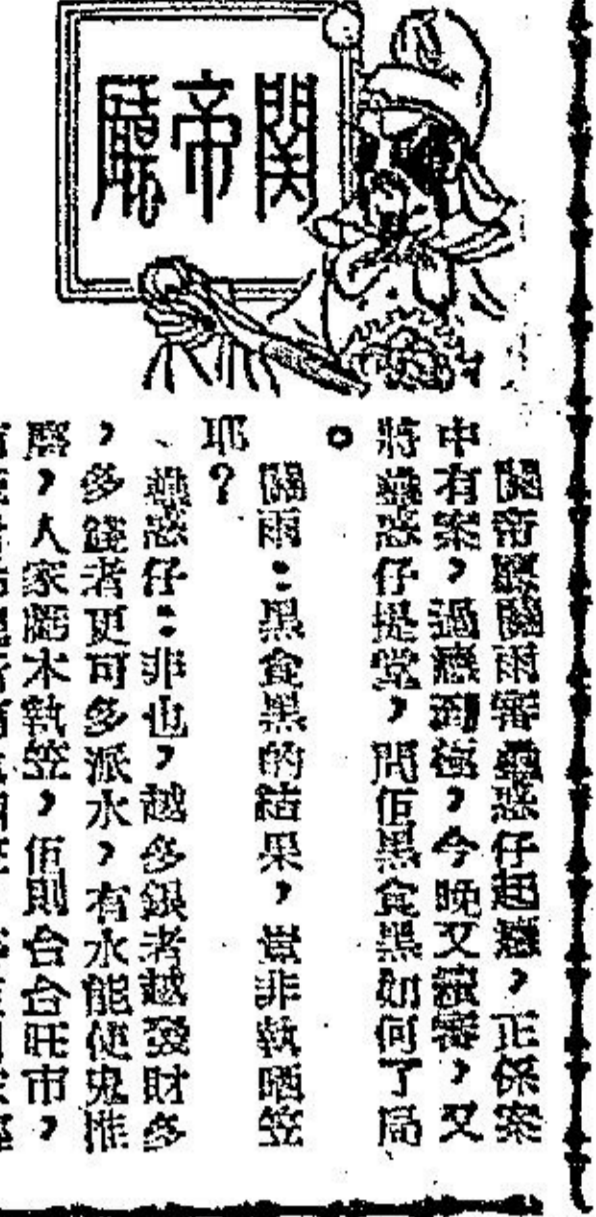 關帝廳
關帝廳關雨審蠱惑仔起題，正係案
中有案，過癮到極，今晚又續審，又
將蠱惑仔提堂，問佢黑食黑如何了局
。
關雨：黑食黑的結果，豈非執晒笠
耶？
、蠱惑仔：非也，越多銀者越發財多
，多錢者更可多派水，有水能使鬼推
磨，人家 木執笠，佢則台台旺市，